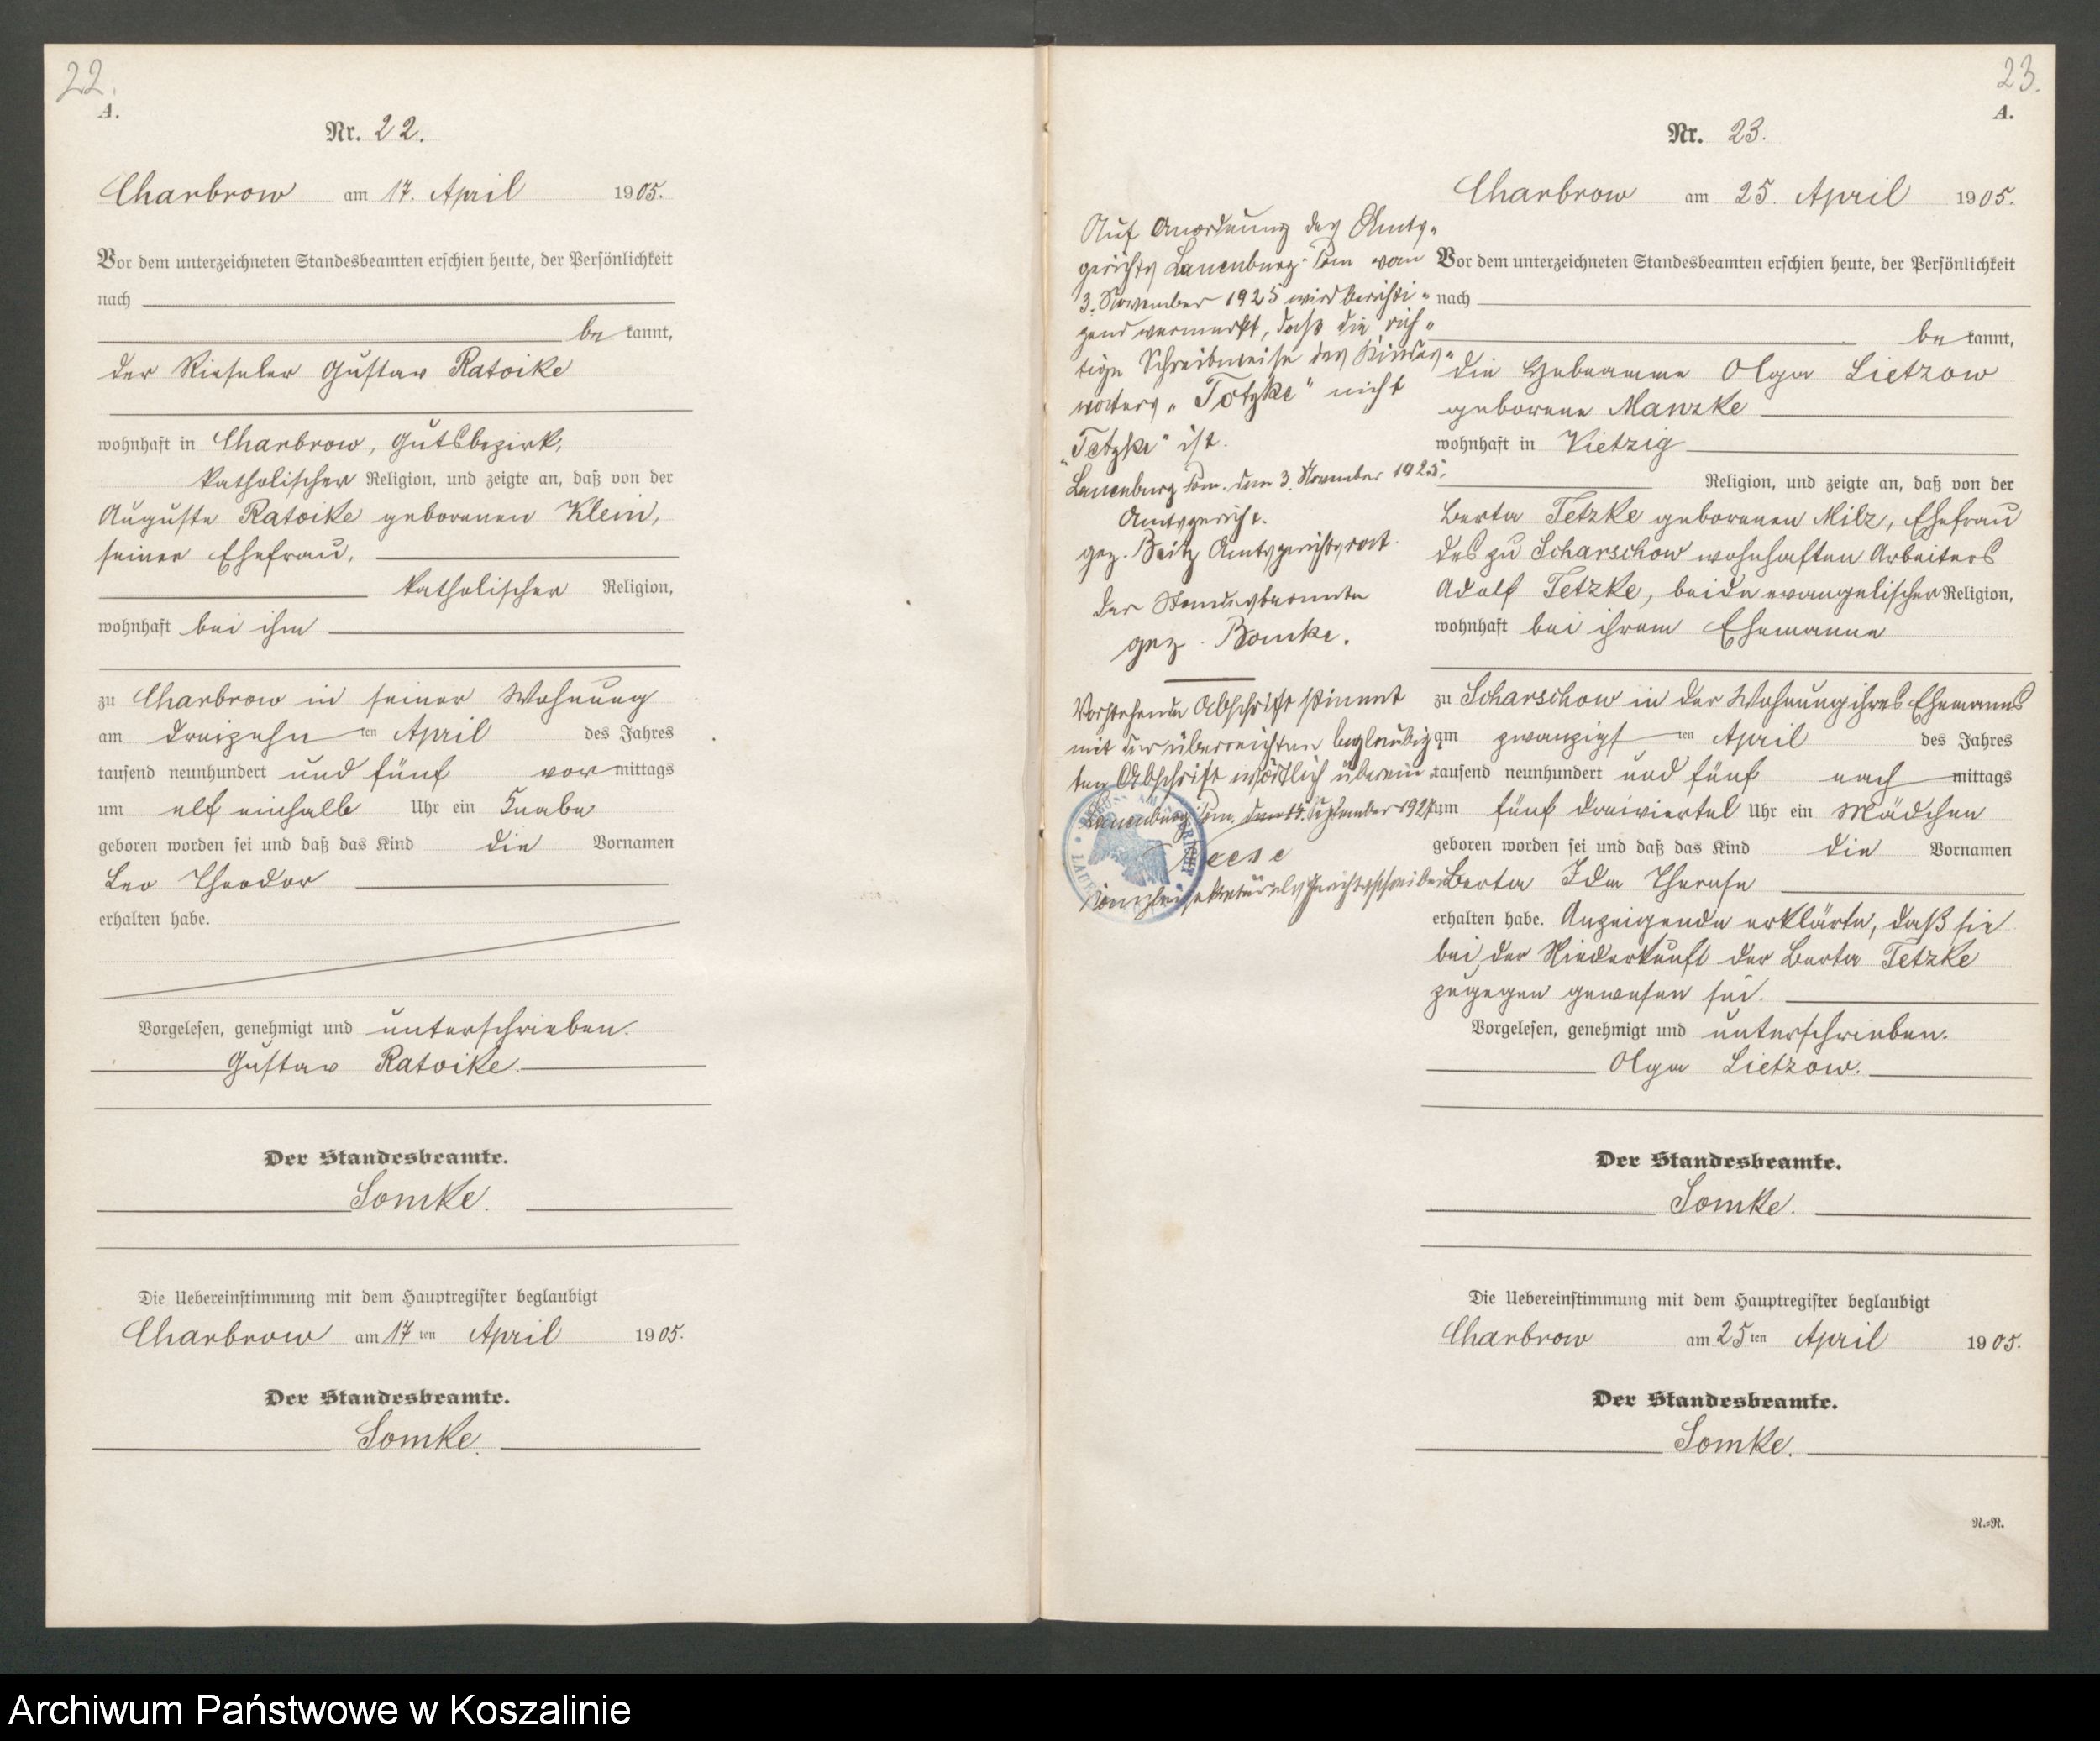 22.
A.
Nr. 22.
Charbrow am 17. April 1905.
Vor dem unterzeichneten Standesbeamten erschien heute, der Persönlichkeit
nach
be kannt,
der Rieseler Gustav Ratoike
wohnhaft in Charbrow, Gutsbezirk,
katholischer Religion, und zeigte an, daß von der
Auguste Ratoike geborenen Klein,
seiner Ehefrau,
katholischer Religion,
wohnhaft bei ihm
zu Charbrow in seiner Wohnung
am dreizehn ten April des Jahres
tausend neunhundert und fünf vor mittags
um elf einhalb Uhr ein Knabe
geboren worden sei und daß das Kind die Vornamen
Leo Theodor
erhalten habe.
Vorgelesen, genehmigt und unterschrieben.
Gustav Ratoike.
Der Standesbeamte.
Somke.
Die Uebereinstimmung mit dem Hauptregister beglaubigt
Charbrow am 17ten April 1905.
Der Standesbeamte.
Somke.
23.
A.
Nr. 23.
Charbrow am 25. April 1905.
Vor dem unterzeichneten Standesbeamten erschien heute, der Persönlichkeit
nach
be kannt,
die Hebeamme Olga Lietzow
geborene Manzke
wohnhaft in Vietzig
Religion, und zeigte an, daß von der
Berta Tetzke geborenen Milz, Ehefrau
des zu Scharschow wohnhaften Arbeiters
Adolf Tetzke, beide evangelischer Religion,
wohnhaft bei ihrem Ehemanne
zu Scharschow in der Wohnung ihres Ehemanns
am zwanzigs ten April des Jahres
tausend neunhundert und fünf nach mittags
um fünf dreiviertel Uhr ein Mädchen
geboren worden sei und daß das Kind die Vornamen
Berta Ida Therese
erhalten habe. Anzeigende erklärte, daß sie
bei der Niederkunft der Berta Tetzke
zugegen gewesen sei.
Vorgelesen, genehmigt und unterschrieben.
Olga Lietzow.
Der Standesbeamte.
Somke.
Die Uebereinstimmung mit dem Hauptregister beglaubigt
Charbrow am 25ten April 1905.
Der Standesbeamte.
Somke.
N.=R.
Auf Anordnung des Amts-
gerichts Lauenburg Pom vom
3. November 1925 wird berichti-
gend vermerkt, daß die rich-
tige Schreibweise des Kindes-
vaters „Totzke" nicht
„Tetzke" ist.
Lauenburg Pom. den 3. November 1925.
Amtsgericht.
gez. Beitz Amtsgerichtsrat.
Der Standesbeamte
gez. Somke.
Vorstehende Abschrift stimmt
mit der überreichten beglaubig-
ten Abschrift wörtlich überein.
Lauenburg Pom. den September 192
Kanzleisekretär als Gerichtsschreiber
Archiwum Państwowe w Koszalinie